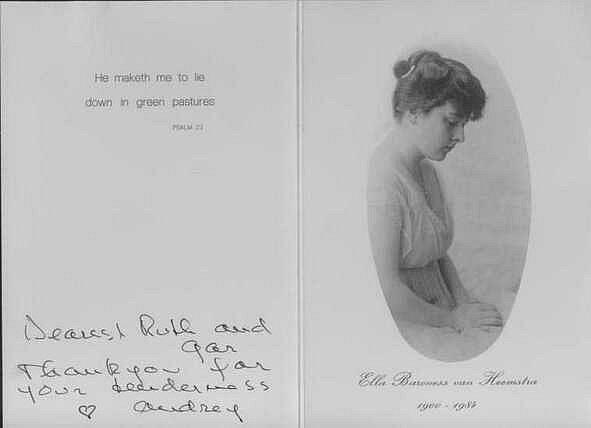 He maketh me to lie
down in green pastures
PSALM 23
Dearest Ruth and
Gar
Thank you for
your tenderness
♡ Audrey
Ella Baroness van Heemstra
1900 - 1984